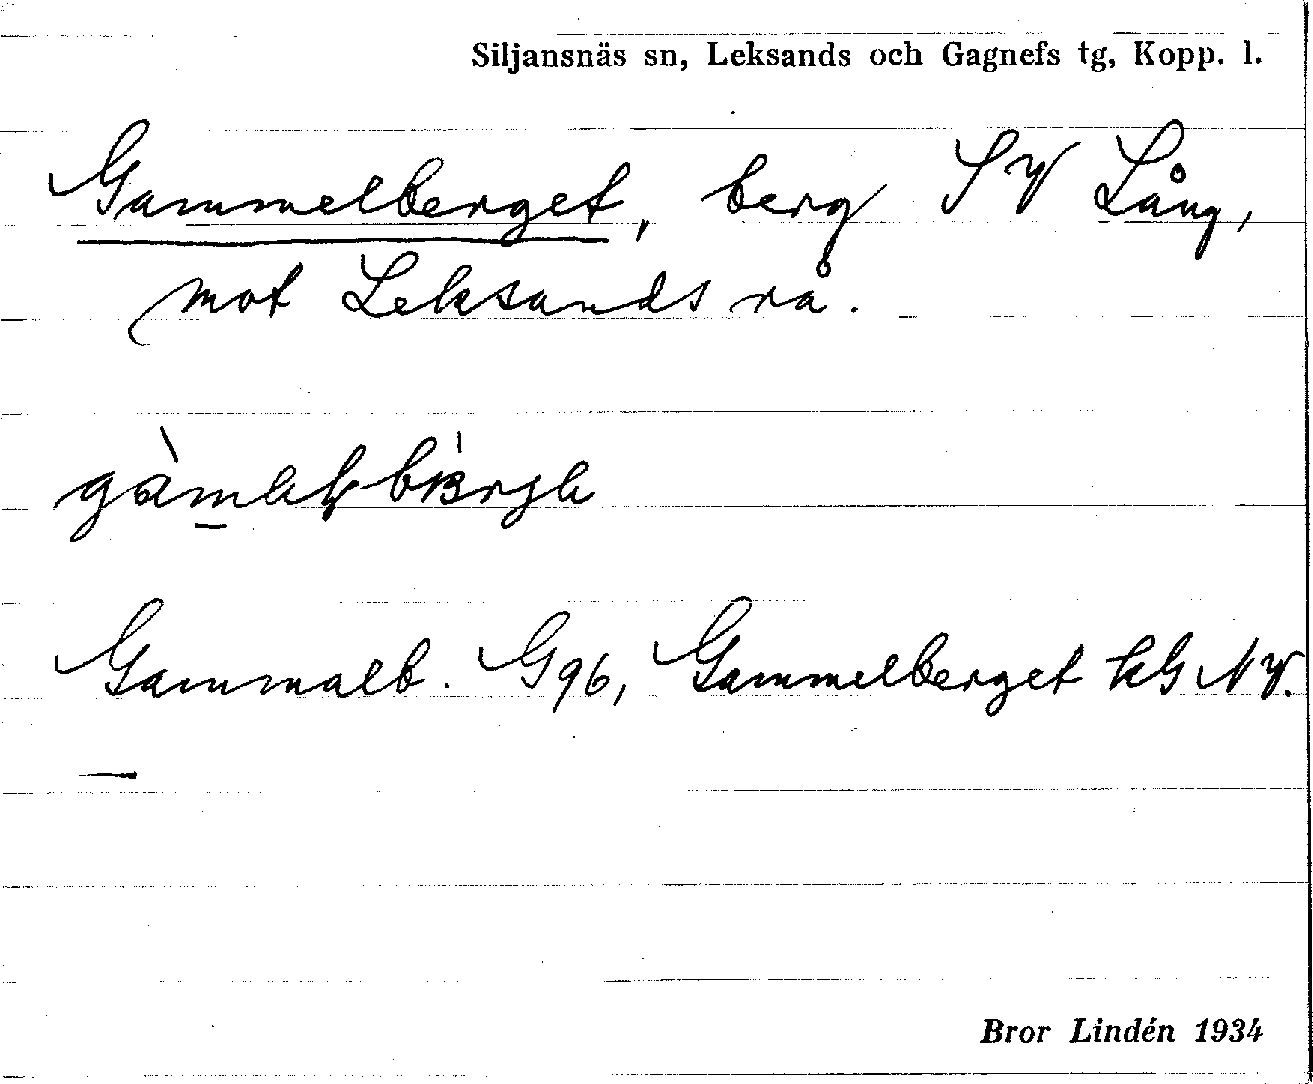 Siljansnäs sn, Leksands och Gagnefs tg, Kopp. l.
Gammelberget, berg SV Lång,
mot Leksands rå.
Gammalb. G96, Gammelberget kG NV.
—
Bror Lindén 1934